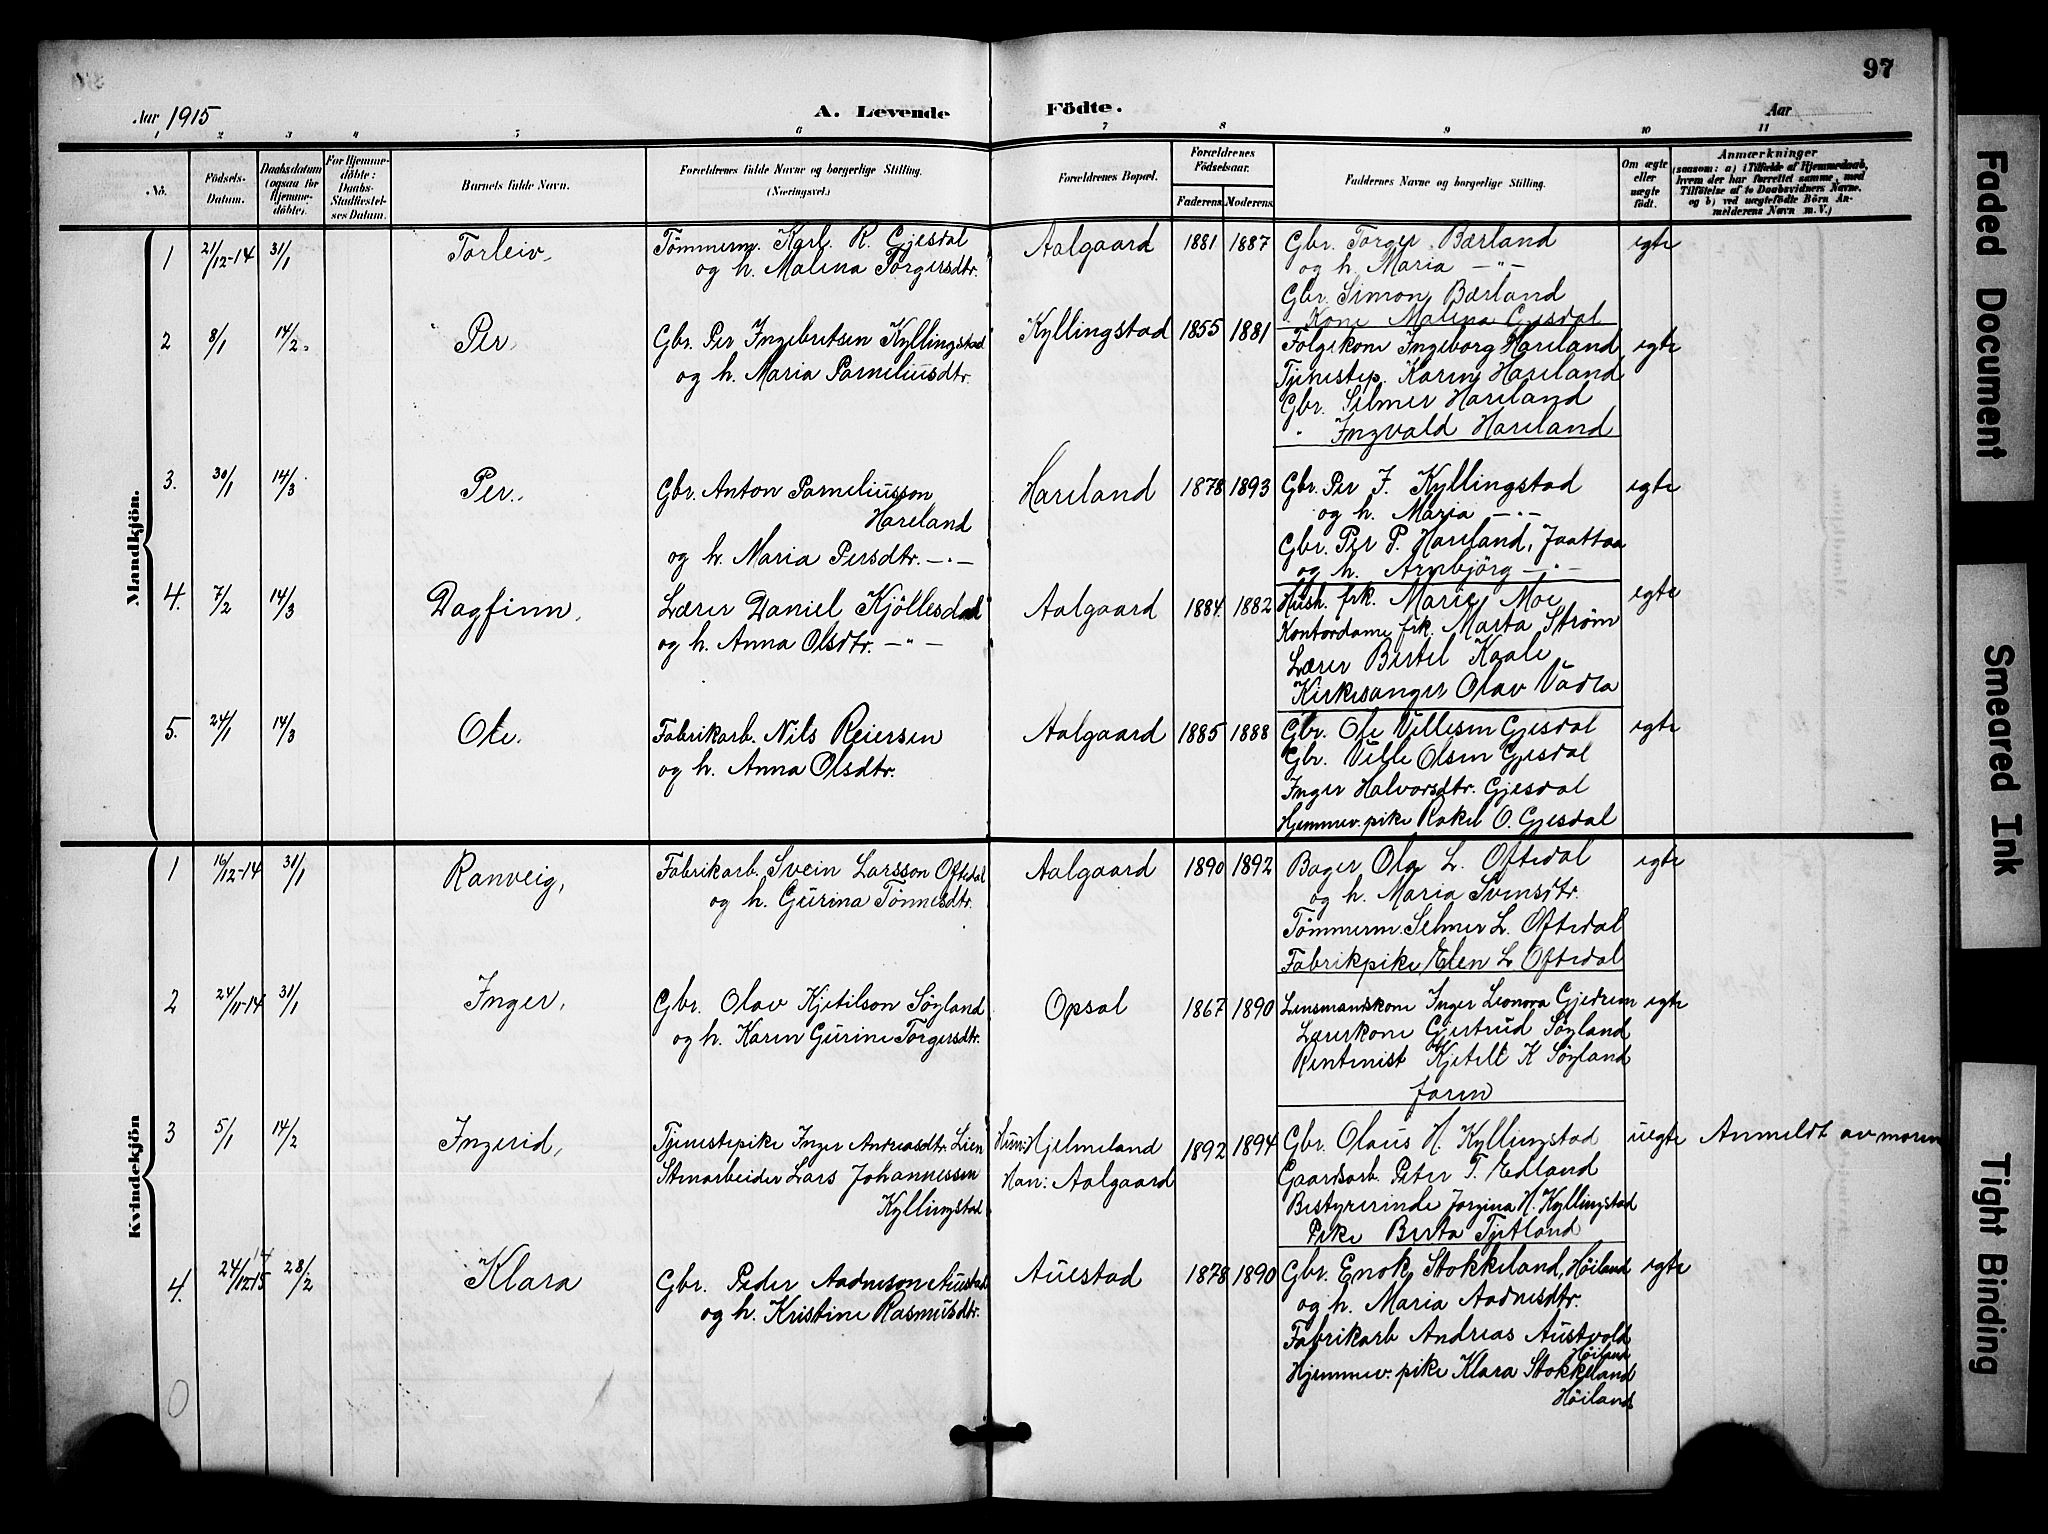 97
Aar 1915
A. Levende Födte.
Aar
1 2 3 4 5 6 7 8 9 10 11
No.
Födsels-Datum.
Daabsdatum (ogsaa for Hjemme-döbte).
For Hjemme-döbte: Daabs-Stadfæstelses Datum.
Barnets fulde Navn.
Forældrenes fulde Navne og borgerlige Stilling. (Næringsvei.)
Forældrenes Bopæl.
Forældrenes Födselsaar.
Faderens Moderens
Faddernes Navne og borgerlige Stilling.
Om ægte eller uægte födt.
Anmærkninger
(saasom: a) i Tilfælde af Hjemmedaab, hvem der har forrettet samme, med Tilföielse af to Daabsvidners Navne, og b) ved uægtefödte Börn Anmelderens Navn m. V.)
Mandkjön.
1 21/12-14 31/1 Torleiv, Tömmerm. Karl R. Gjesdal Aalgaard 1881 1887 Gbr. Torger Bærland egte
og h. Malena Torgersdtr. og h. Maria —"—
Gbr. Simon Bærland
Kone Malena Gjesdal
2 8/1 14/2 Per, Gbr. Per Ingebretsen Kyllingstad Kyllingstad 1855 1881 Folgekone Ingeborg Hareland egte
og h. Maria Parneliusdtr. Tjenestep. Karen Hareland
Gbr. Selmer Hareland
" Ingvald Hareland
3. 30/1 14/3 Per, Gbr. Anton Parneliusson Hareland 1878 1893 Gbr. Per I. Kyllingstad egte
Hareland og h. Maria —"—
og h. Maria Persdtr. —"— Gbr. Per P. Hareland, Jaattaa
og h. Arnbjörg —"—
4. 7/2 14/3 Dagfinn, Lærer Daniel Kjöllesdal Aalgaard 1884 1882 Hush. frk. Marie Moe egte
og h. Anna Olsdtr. —"— Kontordame frk. Marta Ström
Lærer Bertel Kaale
Kirkesanger Olav Vadla
5. 24/1 14/3 Ole. Fabrikarb. Nils Reiersen Aalgaard 1885 1888 Gbr. Ole Villesen Gjesdal egte
og h. Anna Olsdtr. Gbr. Ville Olsen Gjesdal
Inger Halvorsdtr. Gjesdal
Hjemmev. pike Rakel O. Gjesdal
Kvindekjön
1 16/12-14 31/1 Ranveig, Fabrikarb. Svein Larsson Oftedal Aalgaard 1890 1892 Bager Ola L. Oftedal egte
og h. Gurina Tönnesdtr. og h. Maria Svensdtr.
Tömmerm. Selmer L. Oftedal
Fabrikpike Elen L Oftedal
2 24/11-14 31/1 Inger, Gbr. Olav Kjetilson Söyland Opsal 1867 1890 Lensmandskone Inger Leonora Gjedrem egte
og h. Karen Gurine Torgersdtr. Lærerkone Gjertrud Söyland
Rentenist Kjetill K Söyland
faren
3 5/1 14/2 Ingerid, Tjenestepike Inger Andreasdtr. Lien Hun: Hjelmeland 1892 1894 Gbr. Olaus H. Kyllingstad uegte Anmeldt av moren
Stenarbeider Lars Johannessen Han: Aalgaard Gaardsarb. Peter T. Edland
Kyllingstad Bestyrerinde Jorgina H. Kyllingstad
Pike Berta Tjetland
4. 24/12 14 28/2 Klara Gbr. Peder Aadneson Auestad Auestad 1878 1890 Gbr. Enok Stokkeland, Höiland egte
og h. Kristine Rasmusdtr. og h. Maria Aadnesdtr.
Fabrikarb Andreas Austvold
Höiland
Hjemmev. pike Klara Stokkeland
Höiland
Faded Document
Smeared Ink
Tight Binding